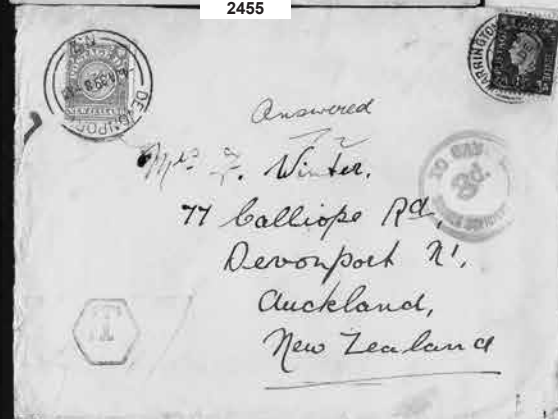 2455
DEVONPORT
N.Z
POSTAGE DUE
NEW ZEALAND
WARRINGTON
Answered
Mrs F. Winter,
77 Calliope Rd,
Devonport N1,
Auckland,
New Zealand
TO PAY
3d.
T